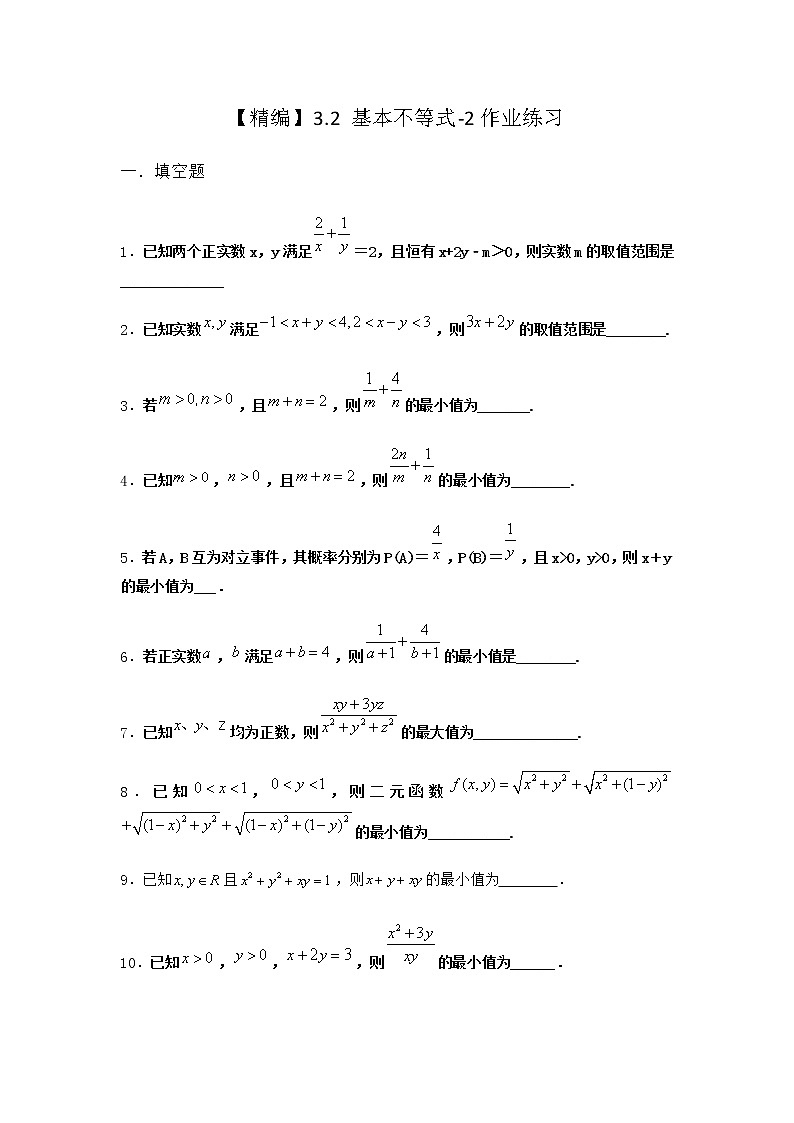 【精编】3.2 基本不等式-2作业练习
一．填空题
1．已知两个正实数x，y满足2/x+1/y＝2，且恒有x+2y﹣m＞0，则实数m的取值范围是
______________
2．已知实数x,y满足−1<x+y<4,2<x−y<3，则3x+2y的取值范围是________．
3．若m>0,n>0，且m+n=2，则1/m+4/n的最小值为_______．
4．已知m>0，n>0，且m+n=2，则2n/m+1/n的最小值为________．
5．若A，B互为对立事件，其概率分别为P(A)＝4/x，P(B)＝1/y，且x>0，y>0，则x＋y
的最小值为___．
6．若正实数a，b满足a+b=4，则1/(a+1)+4/(b+1)的最小值是________．
7．已知x、y、z均为正数，则(xy+3yz)/(x²+y²+z²)的最大值为______________．
8．已知0<x<1，0<y<1，则二元函数f(x,y)=√(x²+y²)+√(x²+(1−y)²)
+√((1−x)²+y²)+√((1−x)²+(1−y)²)的最小值为___________．
9．已知x,y∈R且x²+y²+xy=1，则x+y+xy的最小值为________．
10．已知x>0，y>0，x+2y=3，则(x²+3y)/xy的最小值为______．